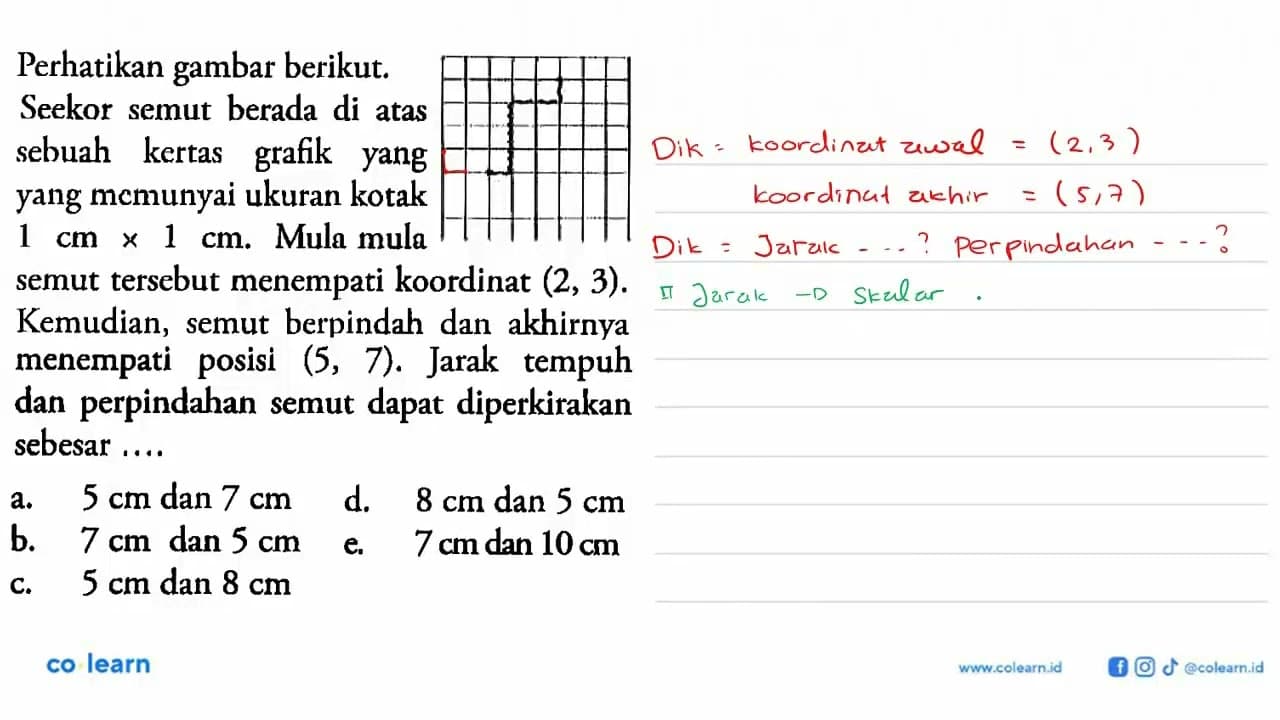 Perhatikan gambar berikut.
Seekor semut berada di atas
sebuah kertas grafik yang
yang mcmunyai ukuran kotak
1 cm × 1 cm. Mula mula
semut tersebut menempati koordinat (2, 3).
Kemudian, semut berpindah dan akhirnya
menempati posisi (5, 7). Jarak tempuh
dan perpindahan semut dapat diperkirakan
sebesar ....
a. 5 cm dan 7 cm d. 8 cm dan 5 cm
b. 7 cm dan 5 cm e. 7 cm dan 10 cm
c. 5 cm dan 8 cm
Dik = koordinat awal = (2,3)
koordinat akhir = (5,7)
Dik = Jarak - - - ? Perpindahan - - - ?
Jarak → skalar .
co learn
www.colearn.id @colearn.id